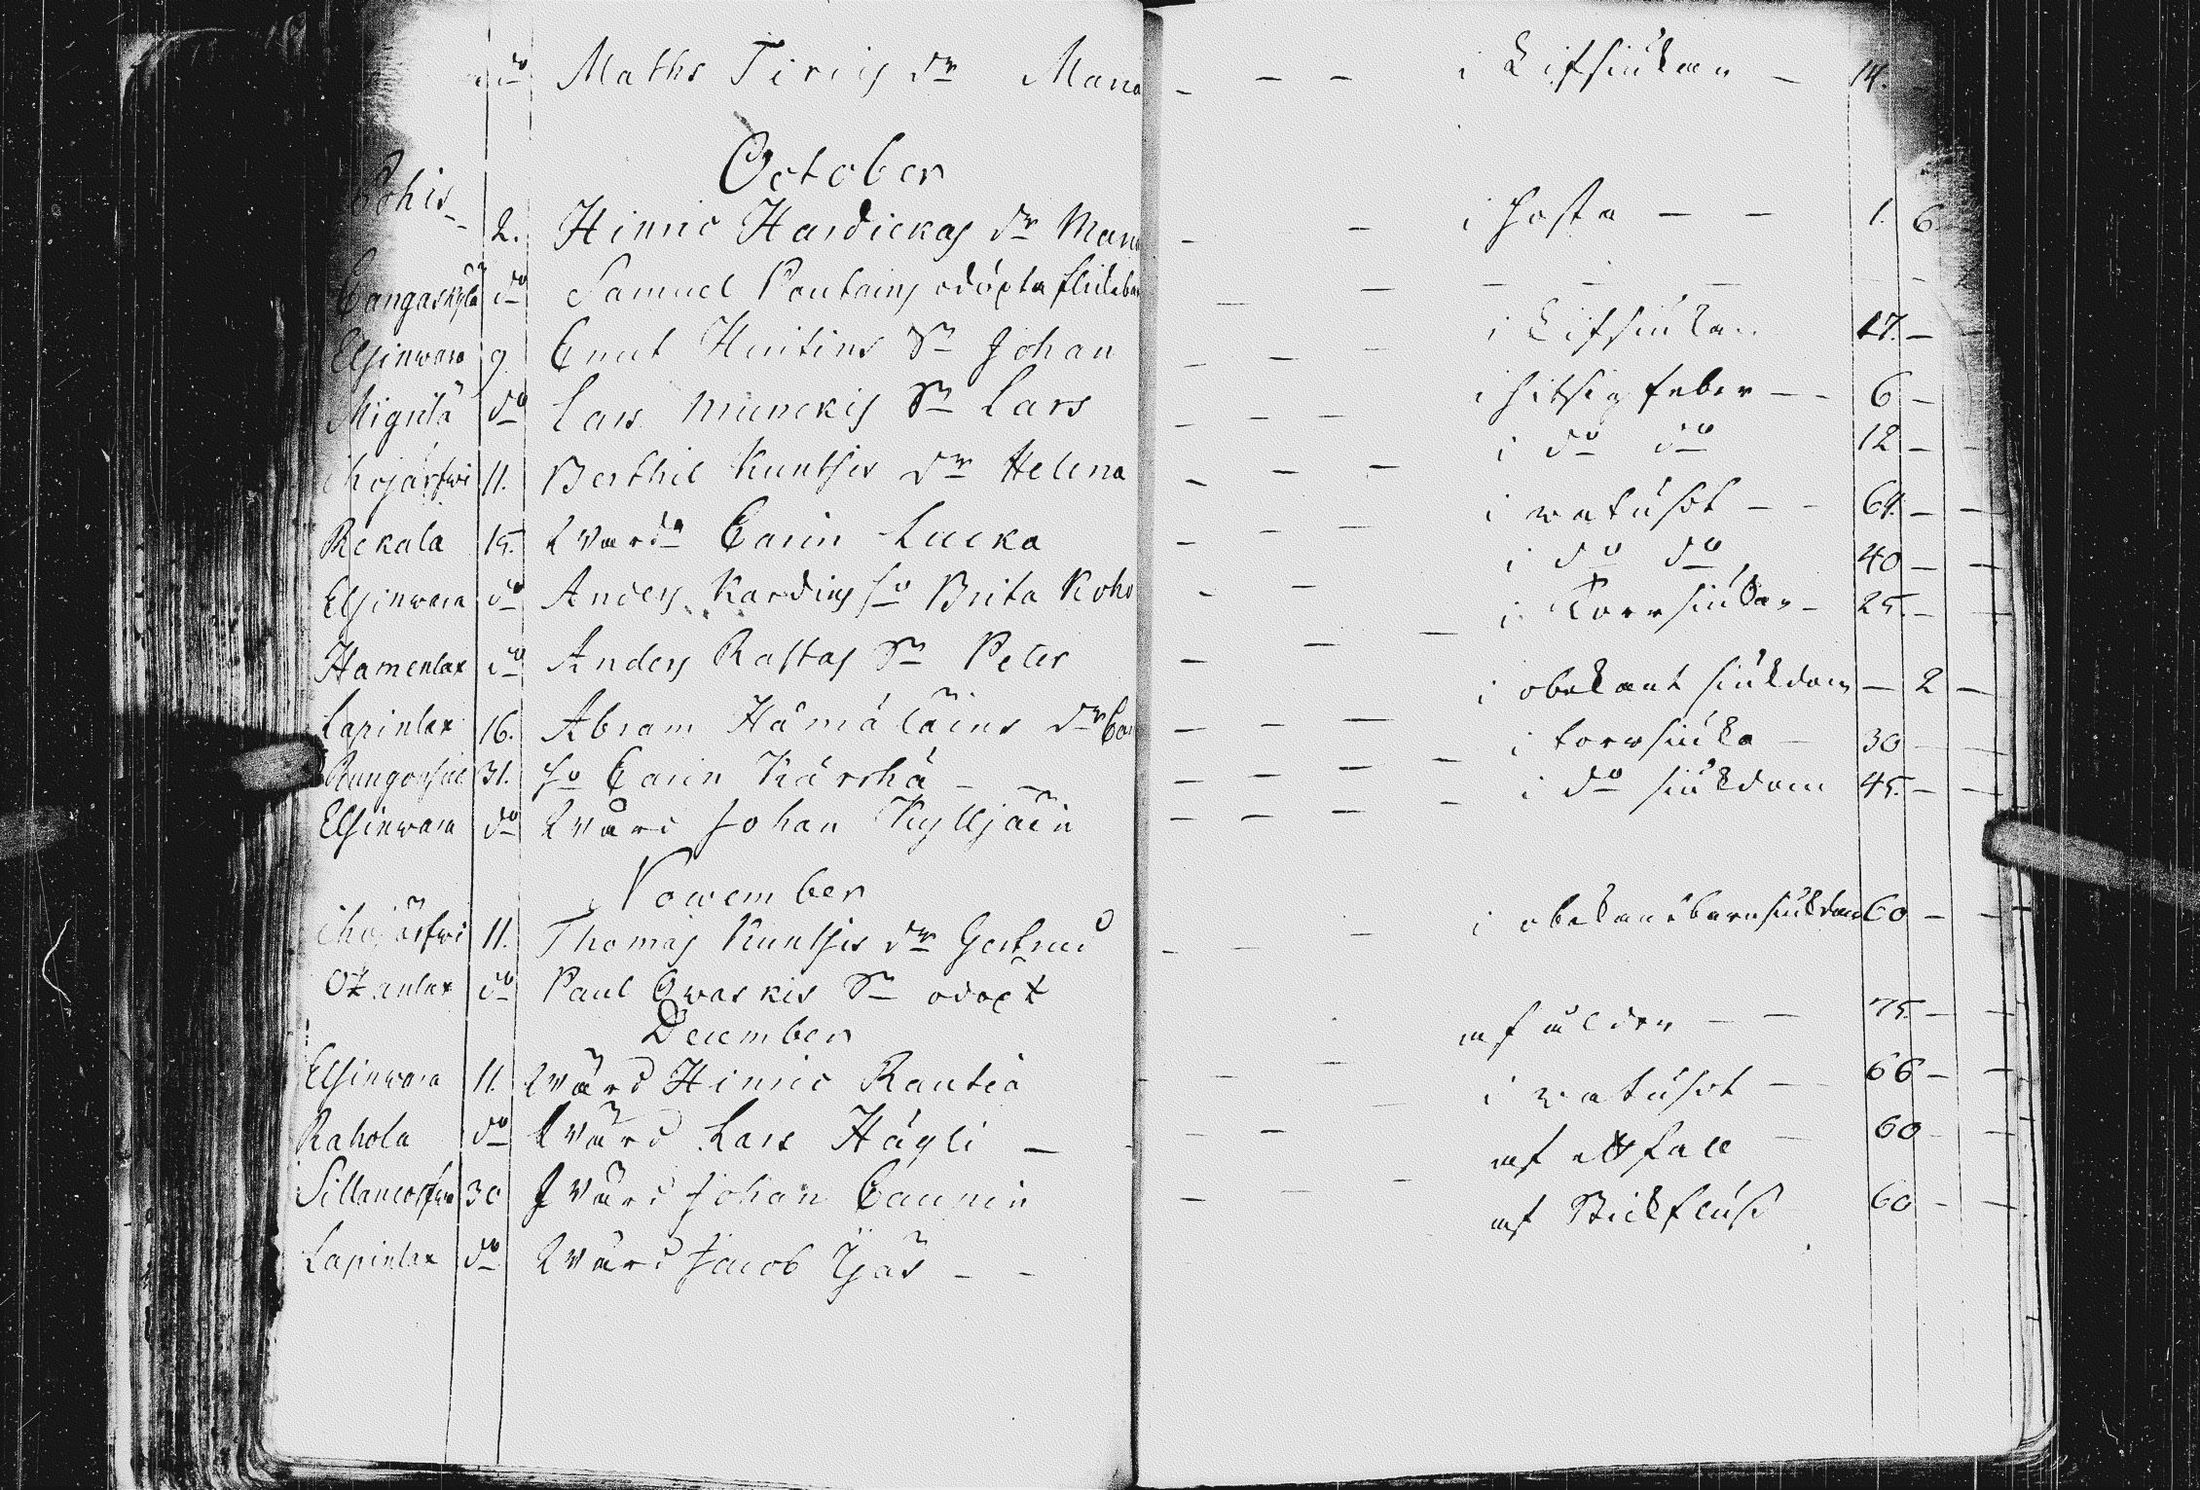 do Maths Tirins dr Mana - - - i Lifsiukan - 14. -
October
Pohis - 2. Hinric Hardickas dr Mari - - i Hosta - - 1. 6
Cangaskylä do Samuel Pentains odöpta flickeba - - - - -
Elsinwara 9. Cnut Huitins Sn Johan - - - i Lifsiukan 17. -
Niguilä do Lars Munckis Sn Lars - - - i hitsig feber - - 6 -
Ihojärfwi 11. Berthil Kuntsis dr Helena - - - i do do 12 - -
Rekala 15. Enkan Carin Lucka - - - i watusot - - 64. - -
Elsinwara do Anders Kardins hu Brita Koho - - i do do 40 - -
Hamenlax do Anders Rastas Sn Peter - - - i Torrsiukan - 25. - -
Lapinlax 16. Abram Hämäläins dr Car - - - i obekant siukdom - 2 -
Rungorju 31. hu Carin Kärhä - - - i torrsiuka - 30 - -
Elsinwara do Enkl Johan Kylljäin - - - i do siukdom 45. - -
Nowember
Ihojärfwi 11. Thomas Kuntsis dr Gertrud - - - i obekant barnsiukdom 60 - -
Otzanlax do Paul Owaskis Sn odöpt
December
Elsinwara 11. Enkl Hinric Rautia - - - af ålder - - 75. - -
Rahola do Enkl Lars Häyli - - - i watusot - - 66 - -
30 Johan Caunin - - - af 60 - -
Lapinlax do Enkl Jacob Jjäs - - - af Stickfluss 60 - -